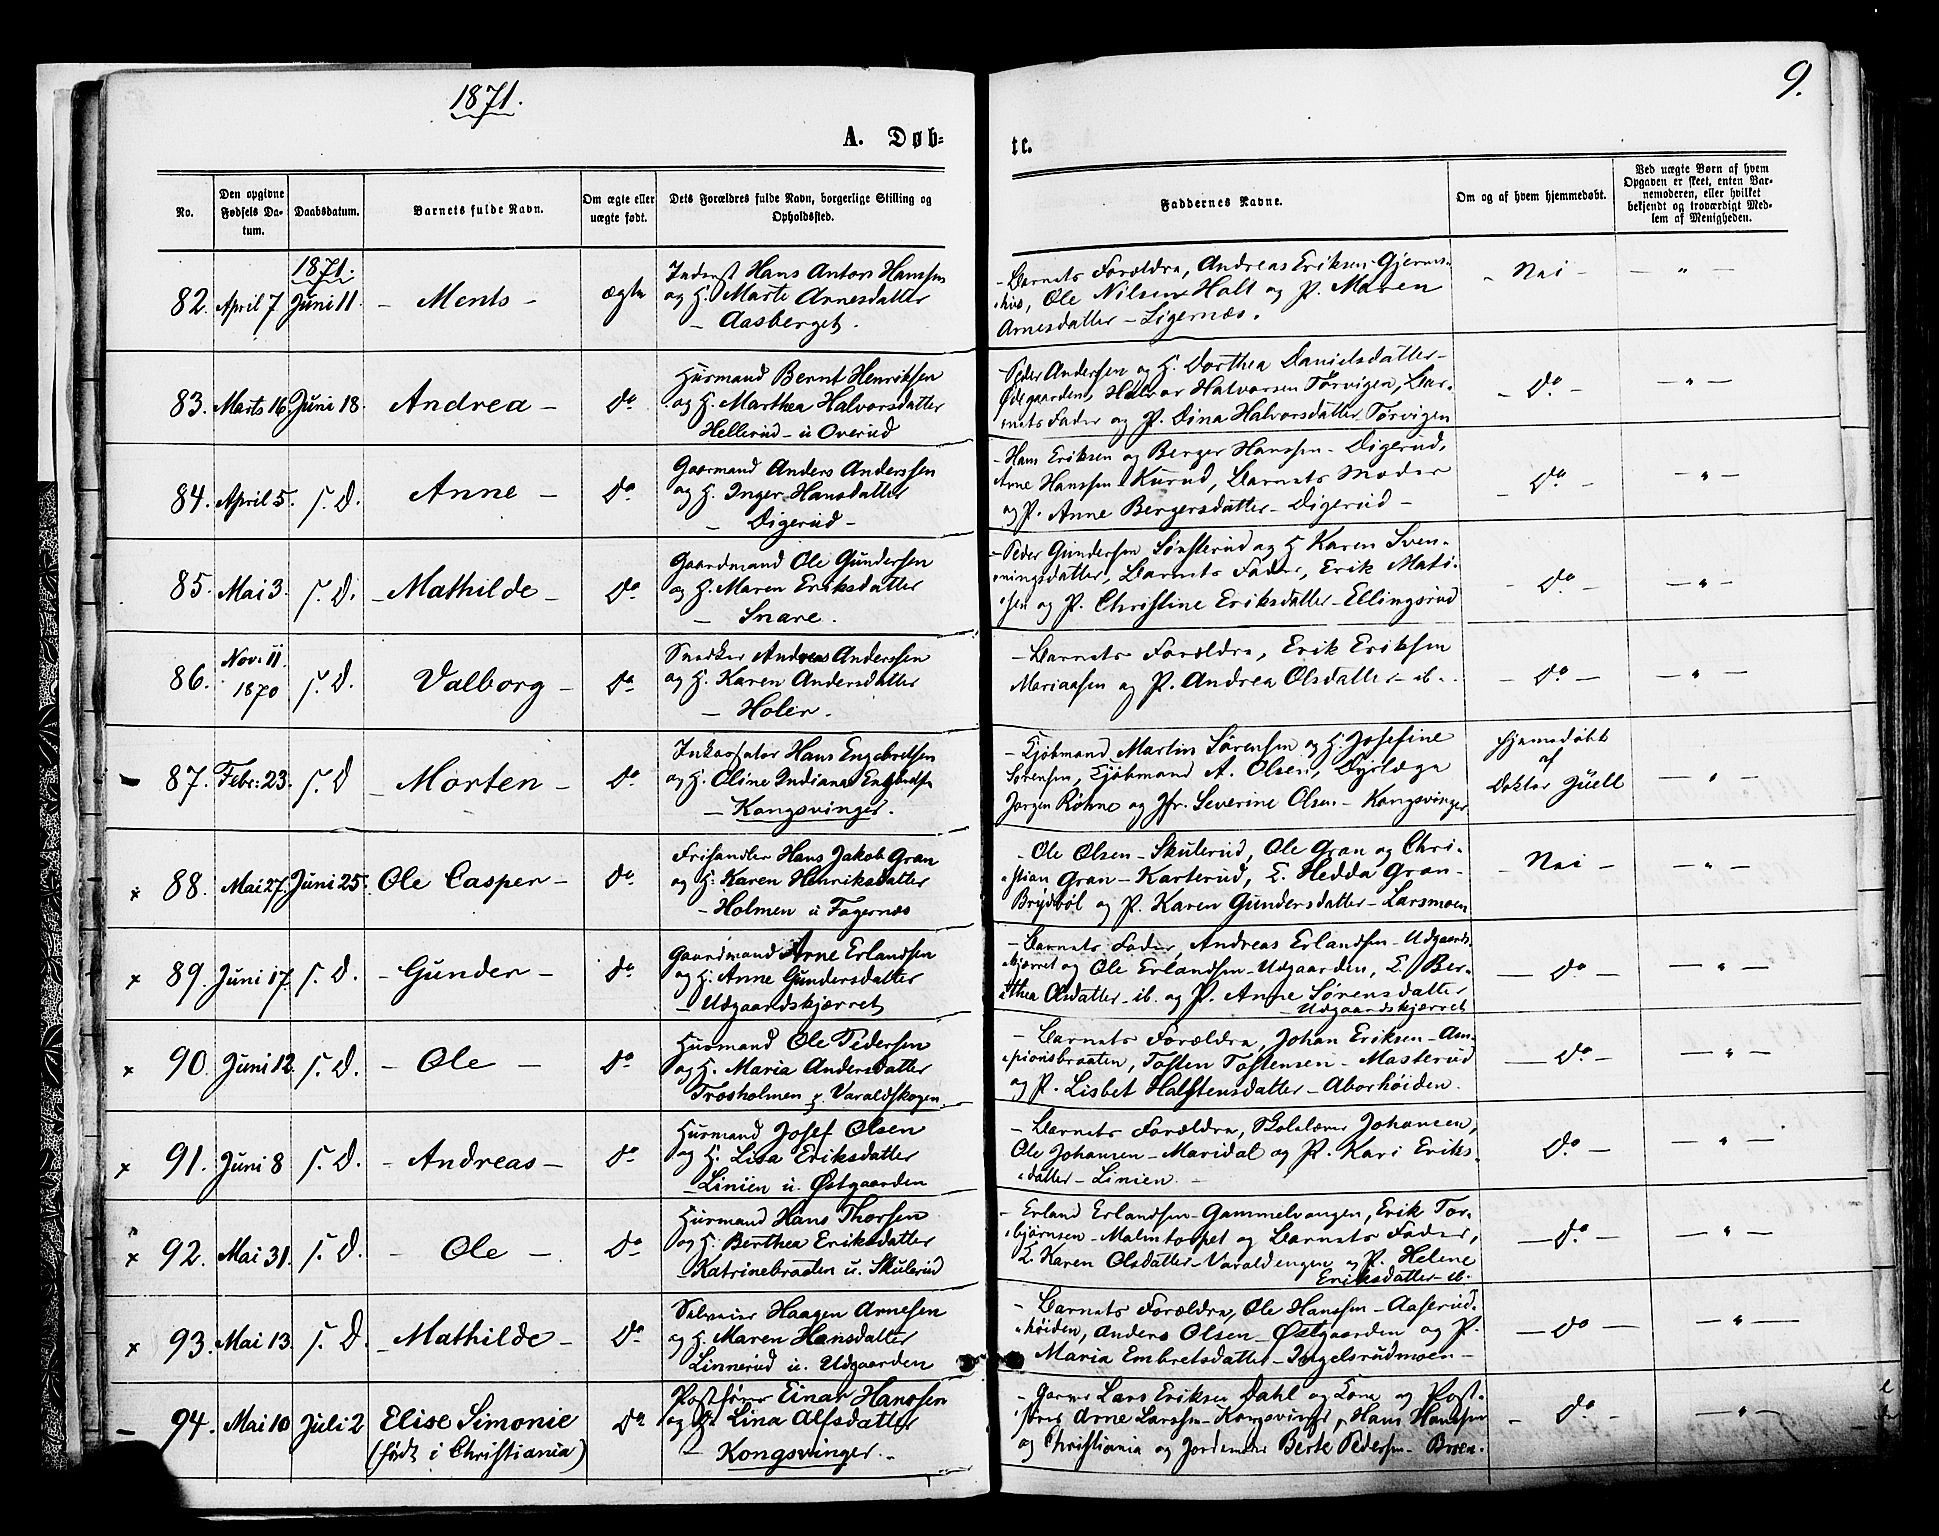 1871.
9.
A. Døb-
te.
No.
Den opgivne Fødsels Da-
tum.
Daabsdatum.
Barnets fulde Navn.
Om ægte eller
uægte født.
Dets Forældres fulde Navn, borgerlige Stilling og
Opholdssted.
Faddernes Navne.
Om og af hvem hjemmedøbt.
Ved uægte Børn af hvem
Opgaven er skeet, enten Bar-
nemoderen, eller hvilket
bekjendt og troværdigt Med-
lem af Menigheden.
1871.
82. April 7 Juni 11 - Ments - ægte
Inderst Hans Anton Hanssen
og H. Marte Arnesdatter
- Aasberget.
- Barnets Forældre, Andreas Eriksen
Ole Nilsen Holt og P. Maren
Arnesdatter - Ligernæs.
- Nei - - " -
83. Marts 16 Juni 18. Andrea - Do
Husmand Bernt Henriksen
og H. Marthea Halvorsdatter
Hellerud - u Overud
- Peder Andersen og H. Dorthea Danielsdatter -
Ødegaarden, Halvor Halvorsen Tørvigen, Bar-
nets Fader og P. Dina Halvorsdatter Tørvigen
- Do. - - " -
84. April 5. s. D. Anne - Do
Gaarmand Anders Anderssen
og H. Inger Hansdatter
- Digerud -
- Hans Eriksen og Berger Hanssen - Digerud,
Arne Hanssen Kurud, Barnets Moder
og P. Anne Bergersdatter - Digerud -
- Do - - " -
85. Mai 3. s. D. - Mathilde - Do
Gaardmand Ole Gundersen
og H. Maren Eriksdatter
- Snare.
- Peder Gundersen Sønsterud og H Karen Sven-
ningsdatter, Barnets Fader, Erik Mati-
sen og P. Christine Eriksdatter - Ellingsrud
- Do. - - " -
86. Nov. 11. 1870 s. D. Valborg - Do
Snedker Andreas Anderssen
og H. Karen Andersdatter
- Holer.
- Barnets Forældre, Erik Eriksen
Mariaasen og P. Andrea Olsdatter - ib -.
- Do - - " -
- 87. Febr: 23. s. D - Morten - Do
Inkassator Hans Engebretsen
og H. Oline Indiane Engebretsen
- Kongsvinger.
- Kjøbmand Martin Sørensen og H. Josefine
Sørensen, Kjøbmand A. Olsen, Dyrlæge
Jørgen Røhne og Jfr. Severine Olsen - Kongsvinger
Hjemmedøbt
af
Doktor Juell
- " -
x 88. Mai 27. Juni 25. Ole Casper - Do
Frihandler Hans Jakob Gran
og H. Karen Henriksdatter
- Holmen u Fagernæs
- Ole Olsen - Skulerud, Ole Gran og Chri-
stian Gran - Karterud, E. Hedda Gran -
Brydbøl og P. Karen Gundersdatter - Larsmoen
- Nei - - " -
x 89. Juni 17. s. D. - Gunder - Do
Gaardmand Arne Erlandsen
og H. Anne Gundersdatter
- Udgaardskjærret
- Barnets Fader, Andreas Erlandsen - Udgaards-
kjærret og Ole Erlandsen - Udgaarden, E. Ber-
thea Olsdatter - ib. og P. Anne Sørensdatter
- Udgaardskjærret
- Do. - - " -
x 90. Juni 12. s. D. - Ole - Do
Husmand Ole Pedersen
og H. Maria Andersdatter
Trosholmen Varaldskogen.
- Barnets Forældre, Johan Eriksen - Am-
pionsbraaten, Tosten Tostensen - Masterud
og P. Lisbet Halstensdatter - Aborhøiden.
- Do. - - " -
x 91. Juni 8 s. D. - Andreas - Do
Husmand Josef Olsen
og H. Lisa Eriksdatter
- Linien u. Østgaarden
- Barnets Forældre, Johansen,
Ole Johansen - Maridal og P. Kari Eriks-
datter - Linien. -
Do. - - " -
x 92. Mai 31. s. D. - Ole - Do
Husmand Hans Thorsen
og H. Berthea Eriksdatter
- Katrinebraaten u. Skulerud
- Erland Erlandsen - Gammelvangen, Erik Tor-
bjørnsen - Malmtorpet og Barnets Fader,
E. Karen Olsdatter - Varaldengen og P. Helene
Eriksdatter - ib.
- Do. - - " -
x 93. Mai 13. s. D. - Mathilde - Do
Selveier Haagen Arnesen
og H. Maren Hansdatter
Linnerud u. Udgaarden
- Barnets Forældre, Ole Hanssen - Aaserud-
høiden, Anders Olsen - Østgaarden og P.
Maria Embretsdatter - Ingelsrudmoen -
- Do - - " -
- 94. Mai 10 Juli 2 Elise Simonie Do
(født i Christiania)
Postfører Einar Hanssen
og H. Lina Alfsdatter
- Kongsvinger. -
- Garver Lars Eriksen Dahl og Kone og Post-
Arne Larssen - Kongsvinger, Hans Hanssen
Christiania og Jordemoder Berte Pedersen - Broen.
- Do. - - " -